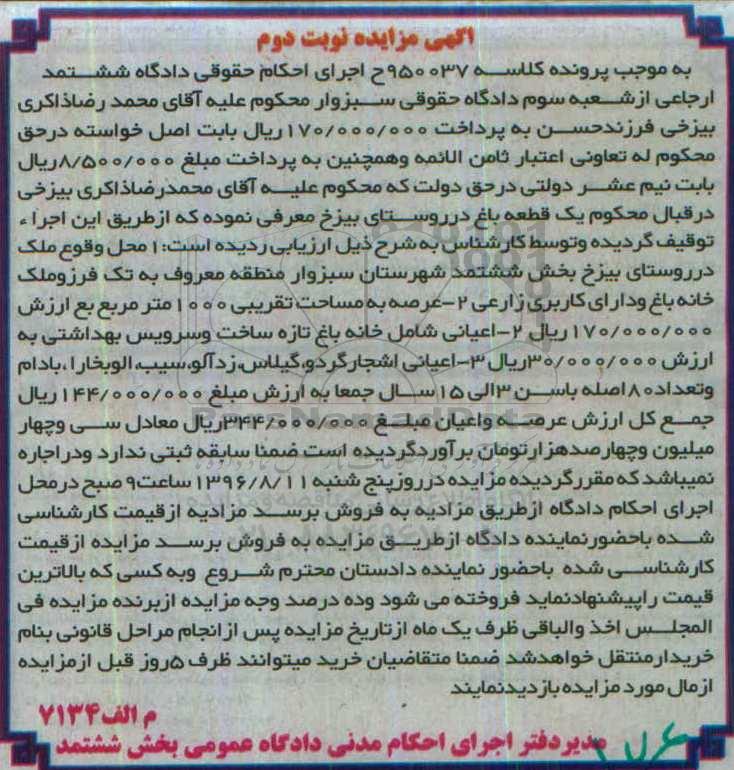 آگهی مزایده نوبت دوم
به موجب پرونده کلاسه ۹۵۰۰۳۷ح اجرای احکام حقوقی دادگاه ششتمد
ارجاعی ازشعبه سوم دادگاه حقوقی سبزوار محکوم علیه آقای محمد رضاذاکری
بیزخی فرزندحسن به پرداخت ۱۷۰/۰۰۰/۰۰۰ریال بابت اصل خواسته درحق
محکوم له تعاونی اعتبار ثامن الائمه وهمچنین به پرداخت مبلغ ۸/۵۰۰/۰۰۰ریال
بابت نیم عشر دولتی درحق دولت که محکوم علیه آقای محمدرضاذاکری بیزخی
درقبال محکوم یک قطعه باغ درروستای بیزخ معرفی نموده که ازطریق این اجراء
توقیف گردیده وتوسط کارشناس به شرح ذیل ارزیابی ردیده است:۱ محل وقوع ملک
درروستای بیزخ بخش ششتمد شهرستان سبزوار منطقه معروف به تک فرزوملک
خانه باغ ودارای کاربری زارعی ۲-عرصه به مساحت تقریبی ۱۰۰۰متر مربع بع ارزش
۱۷۰/۰۰۰/۰۰۰ریال ۲-اعیانی شامل خانه باغ تازه ساخت وسرویس بهداشتی به
ارزش ۳۰/۰۰۰/۰۰۰ریال ۳-اعیانی اشجارگردو،گیلاس،زدآلو،سیب،الوبخارا،بادام
وتعداد۸۰اصله باسن ۳الی ۱۵ سال جمعا به ارزش مبلغ ۱۴۴/۰۰۰/۰۰۰ریال
جمع کل ارزش عرصه واعیان مبلغ ۳۴۴/۰۰۰/۰۰۰ریال معادل سی وچهار
میلیون وچهارصدهزارتومان برآوردگردیده است ضمنا سابقه ثبتی ندارد ودراجاره
نمیباشد که مقررگردیده مزایده درروزپنج شنبه ۱۳۹۶/۸/۱۱ ساعت۹ صبح درمحل
اجرای احکام دادگاه ازطریق مزادیه به فروش برسد مزادیه ازقیمت کارشناسی
شده باحضورنماینده دادگاه ازطریق مزایده به فروش برسد مزایده ازقیمت
کارشناسی شده باحضور نماینده دادستان محترم شروع وبه کسی که بالاترین
قیمت راپیشنهادنماید فروخته می شود وده درصد وجه مزایده ازبرنده مزایده فی
المجلس اخذ والباقی ظرف یک ماه ازتاریخ مزایده پس ازانجام مراحل قانونی بنام
خریدارمنتقل خواهدشد ضمنا متقاضیان خرید میتوانند ظرف ۵روز قبل ازمزایده
ازمال مورد مزایده بازدیدنمایند
م الف۷۱۳۴
مدیردفتر اجرای احکام مدنی دادگاه عمومی بخش ششتمد
ParsNamadData